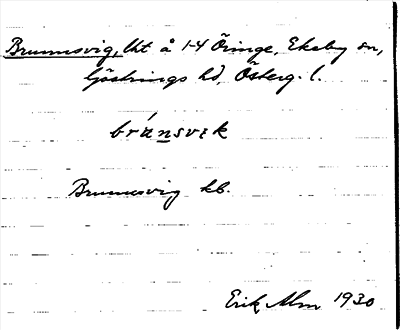 Brunnsvig, lht å 1-4 Öringe, Ekeby sn,
Göstrings hd, Österg. l.
brúnsvɩk
Brunnsvig kb.
Erik Alm 1930